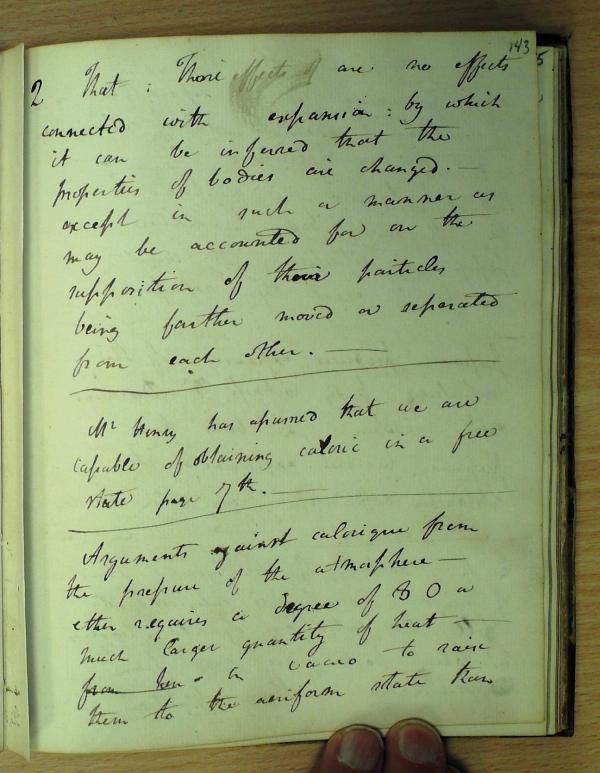 143
5
2 That : Those effects of are no effects
connected with expansion : by which
it can be inferred that the
properties of bodies are changed. —
except in such a manner as
may be accounted for on the
supposition of their particles
being farther moved or seperated
from each other. —
Mr Henry has assumed that we are
capable of obtaining caloric in a free
state page 7th. —
Arguments against calorique from
the pressure of the atmosphere —
ether requires a degree of 80 a
much larger quantity of heat —
from in vacuo to raise
them to the aeriform state than